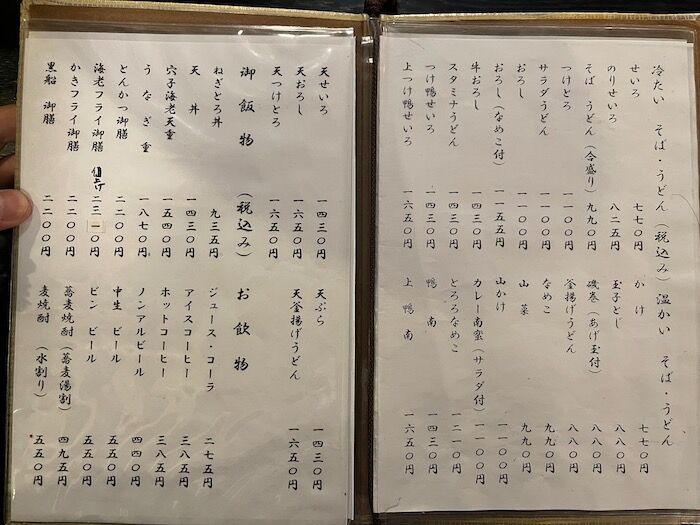 冷たい そば・うどん(税込み) 温かい そば・うどん
せいろ 七七〇円
のりせいろ 八二五円
そば うどん(合盛り) 九九〇円
つけとろ 一一〇〇円
サラダうどん 一一〇〇円
おろし 一一〇〇円
おろし(なめこ付) 一一五五円
牛おろし 一四三〇円
スタミナうどん 一四三〇円
つけ鴨せいろ 一四三〇円
上つけ鴨せいろ 一六五〇円
かけ 七七〇円
玉子とじ 八八〇円
磯巻(あげ玉付) 八八〇円
釜揚げうどん 八八〇円
なめこ 九九〇円
山菜 九九〇円
山かけ 一一〇〇円
カレー南蛮(サラダ付) 一一〇〇円
とろろなめこ 一二一〇円
鴨南 一四三〇円
上鴨南 一六五〇円
天せいろ 一四三〇円
天おろし 一六五〇円
天つけとろ 一六五〇円
天ぷら 一四三〇円
天釜揚げうどん 一六五〇円
御飯物 (税込み) お飲物
ねぎとろ丼 九三五円
天丼 一四三〇円
穴子海老天重 一五四〇円
うなぎ重 一八七〇円
とんかつ御膳 二二〇〇円
海老フライ御膳 二三一〇円
かきフライ御膳 二二〇〇円
黒船 御膳 二二〇〇円
ジュース・コーラ 二七五円
アイスコーヒー 三八五円
ホットコーヒー 三八五円
ノンアルビール 四四〇円
中生 ビール 五五〇円
ビン ビール 五五〇円
蕎麦焼酎 (蕎麦湯割) 四九五円
麦焼酎 (水割り) 五五〇円